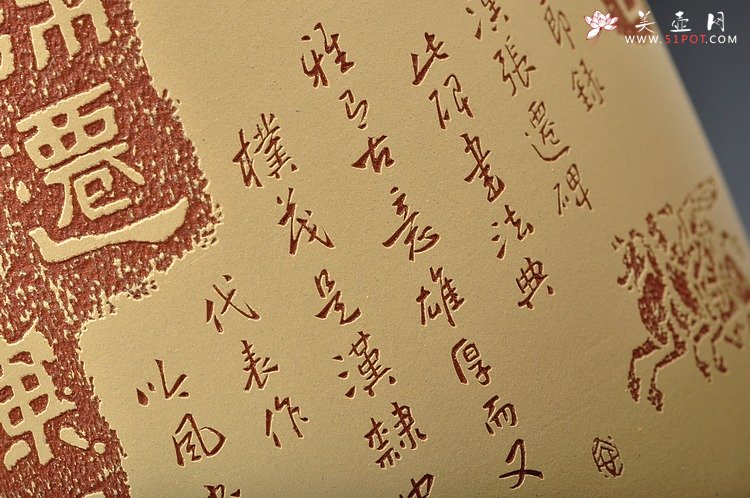 美壶网
WWW.51POT.COM
錄
漢張遷碑
此碑書法典
雅与古意雄厚而又
樸茂是漢隸中
代表作
以風
遷